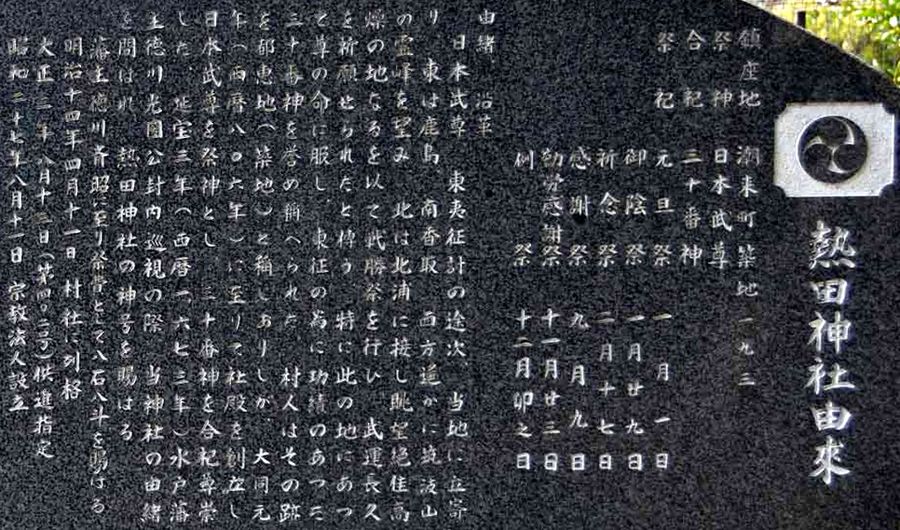 熱田神社由來
鎮座地 潮来町築地一九三
祭神 日本武尊
合祀 三十番神
祭祀 元旦祭 一月一日
御陰祭 一月廿九日
祈念祭 二月十七日
感謝祭 九月九日
勤労感謝祭 十一月廿三日
例祭 十二月卯之日
由緒、沿革
日本武尊、東夷征討の途次、当地に立寄
り、東は鹿島、南香取、西方遥かに筑波山
の霊峰を望み、北は北浦に接し眺望絶佳高
燥の地なるを以て戦勝祭を行ひ、武運長久
を祈願せられたと傳う 特に此の地にあつ
て尊の命に服し、東征の為に功績のあつた
三十番神を誉め稱へられた、村人はその跡
を郁恵地(築地)と稱しありしが、大同元
年(西暦八〇六年)に至りて社殿を創立し
日本武尊を祭神とし、三十番神を合祀尊崇
した、延宝三年(西暦一六七三年)水戸藩
主徳川光圀公封内巡視の際、当神社の由緒
を問はれ、熱田神社の神号を賜はる
藩主徳川斉昭に至り祭資として八石八斗を賜はる
明治十四年四月十一日 村社に列格
大正三年八月十三日(第四〇三号)供進指定
昭和二十七年八月十一日 宗教法人設立